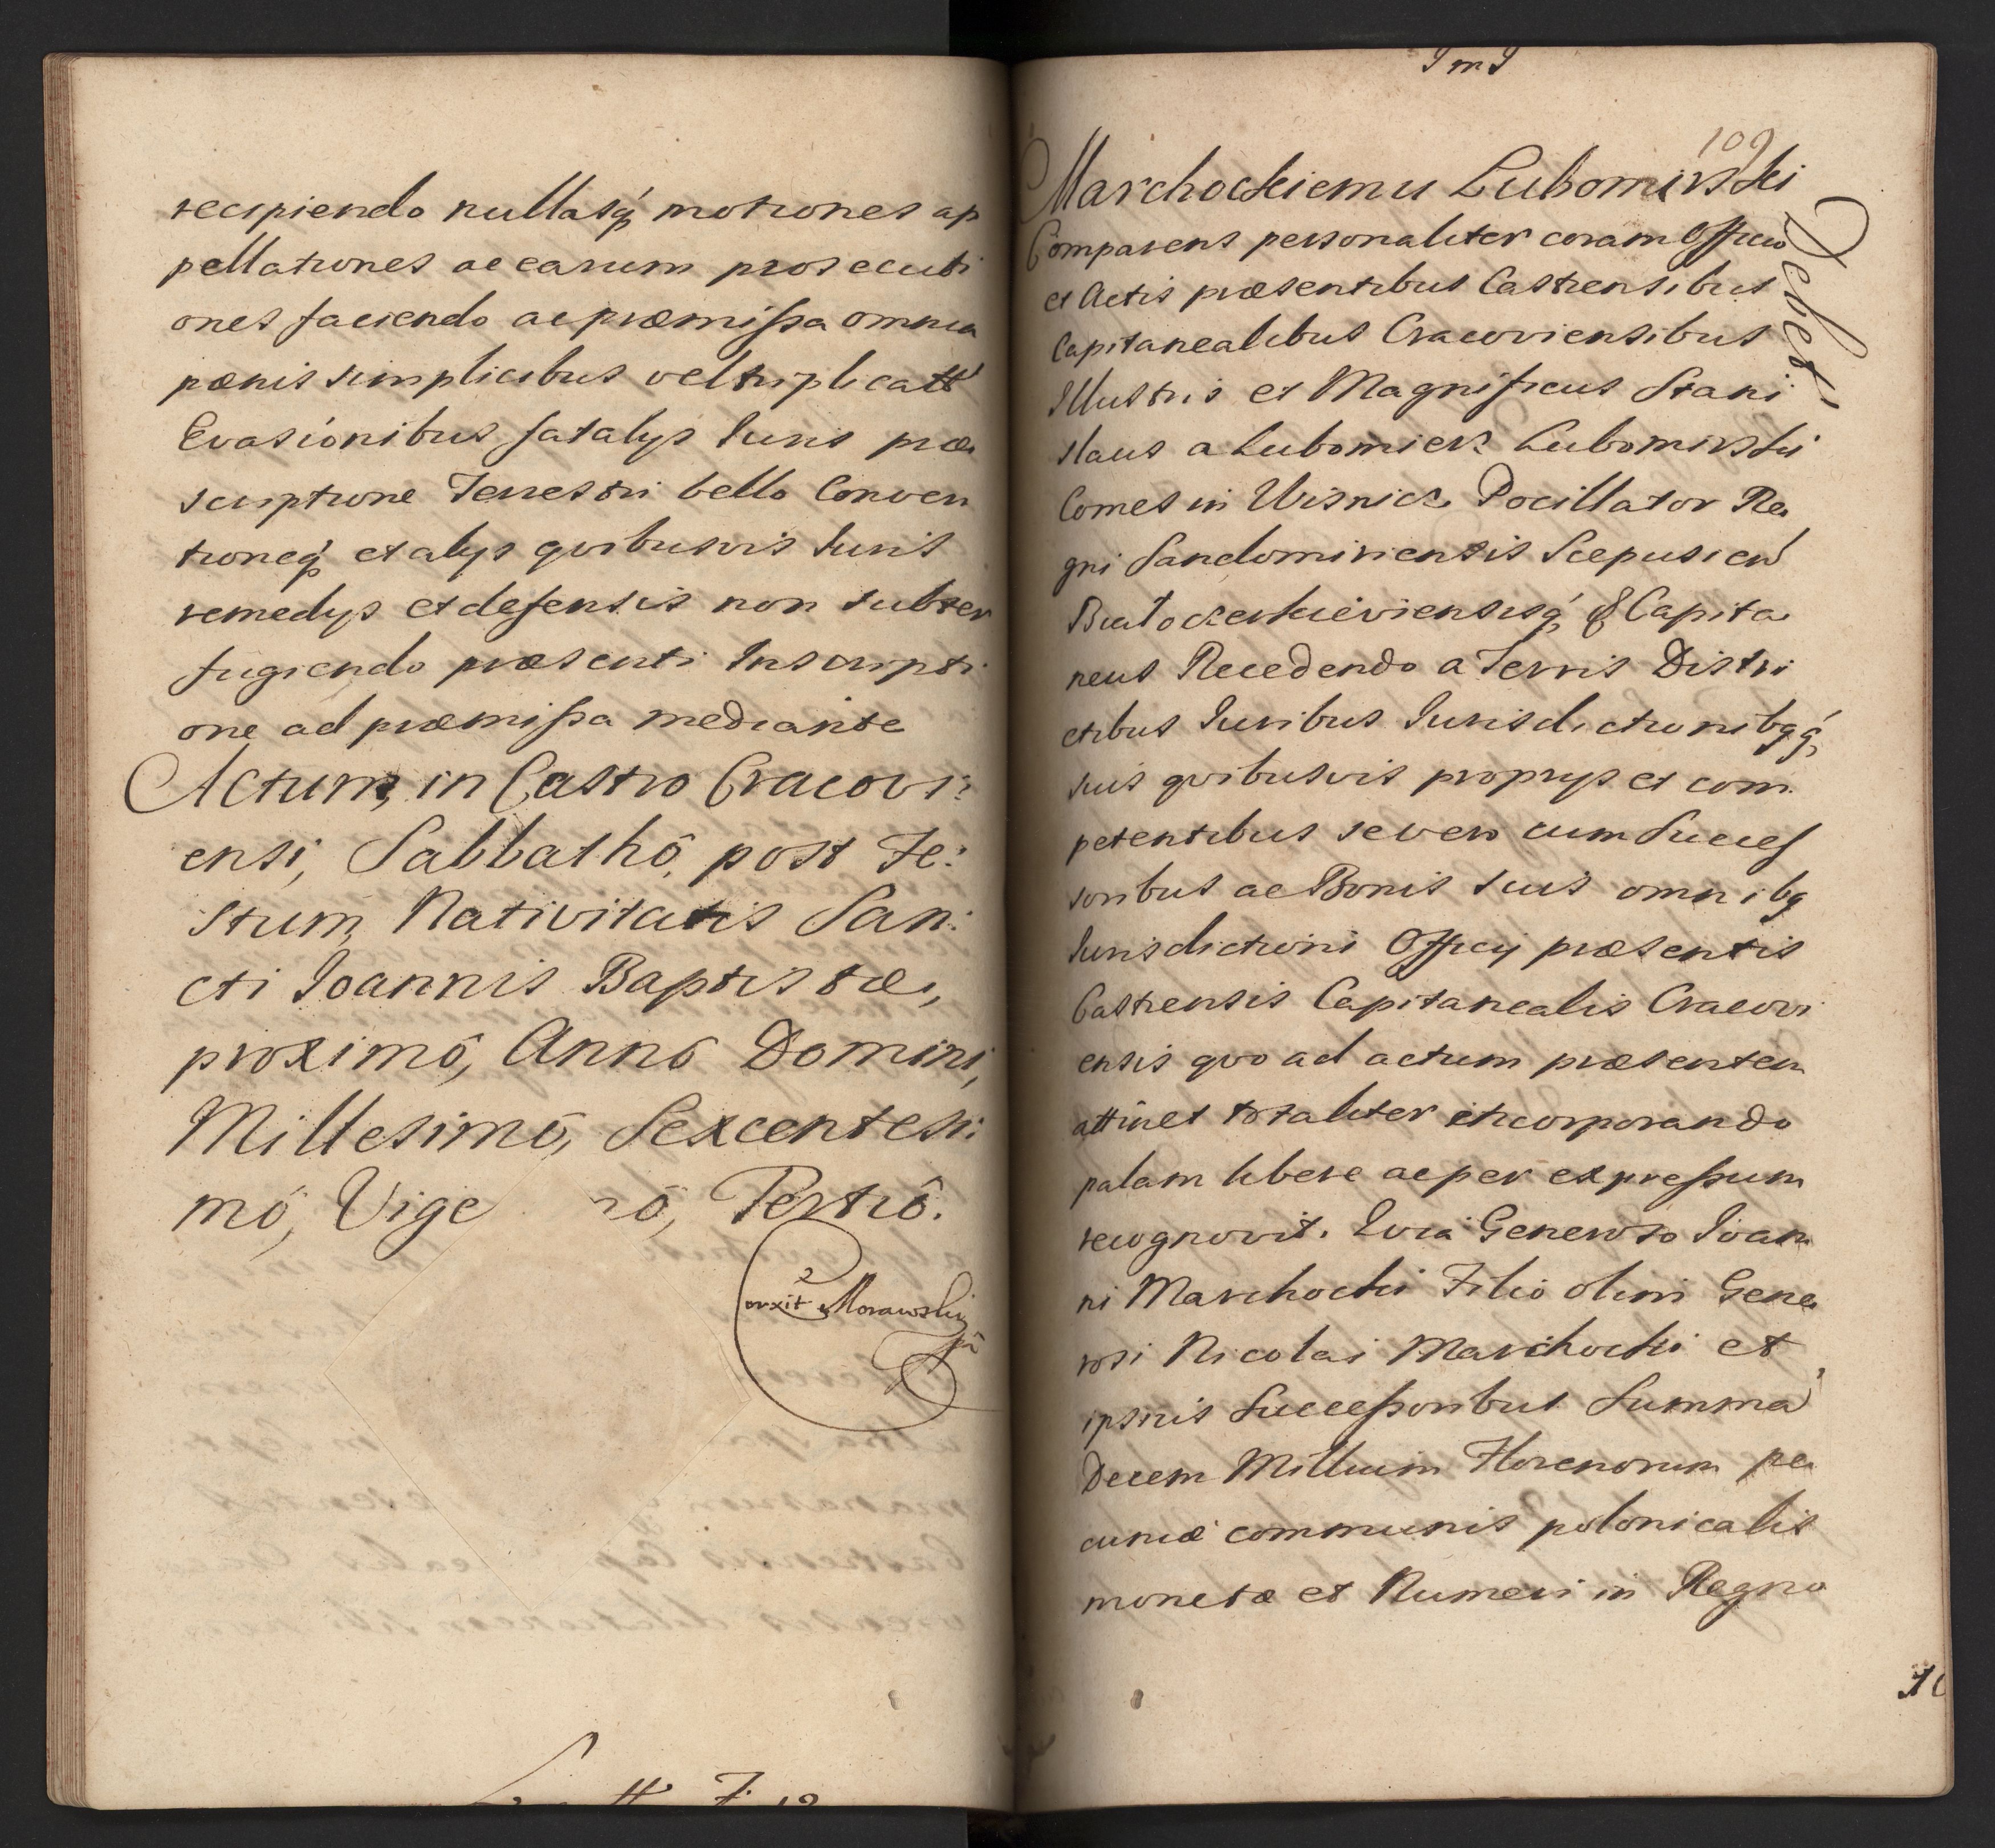 recipiendo nullasq́ motiones ap
pellationes ac earum prosecuti
ones faciendo ac præmissa omnia
pænis simplicibus vel triplicatt
Evasionibus fatalys Iuris præ
scriptione Terrestri bello Conven
tioneq́ et alys qvibusvis Iuris
remedys et defensis non subter
fugiendo præsenti Inscripti
one ad præmissa mediante
Actum, in Castro Cracovi:
ensi, Sabbathô, post Fe:
stum, Nativitatis San:
cti Ioannis Baptistæ,
proximô, Annô Domini,
Millesimô, Sexcentesi:
mô, Vige nô, Tertiô.
orxit Morawski
pā
ImI
109
Marchockiemu Lubomirski
Debet
Comparens personaliter coram Officio
et Actis præsentibus Castrensibus
Capitanealibus Cracoviensibus
Illustris et Magnificus Stani
slaus a Lubomierz Lubomirski
Comes in Wisnicz Pocillator Re
gni Sandomiriensis Scepusien
Białocerkieviensisq́ & Capita
neus Recedendo a Terris Distri
ctibus Iuribus Iurisdictionibqq́
suis qvibusvis proprys et com
petentibus se vero cum Succes
soribus ac Bonis suis omnibq
Iurisdictioni Officij præsentis
Castrensis Capitanealis Cracovi
ensis qvo ad actum præsentem
attinet totaliter incorporando
palam libere ac per expressum
recognovit. Qvia Generoso Ioan
ni Marchocki Filio olim Gene
rosi Nicolai Marchocki et
ipsius Successoribus Summā
Decem Millium Florenorum pe
cuniæ communis polonicalis
monetæ et Numeri in Regno